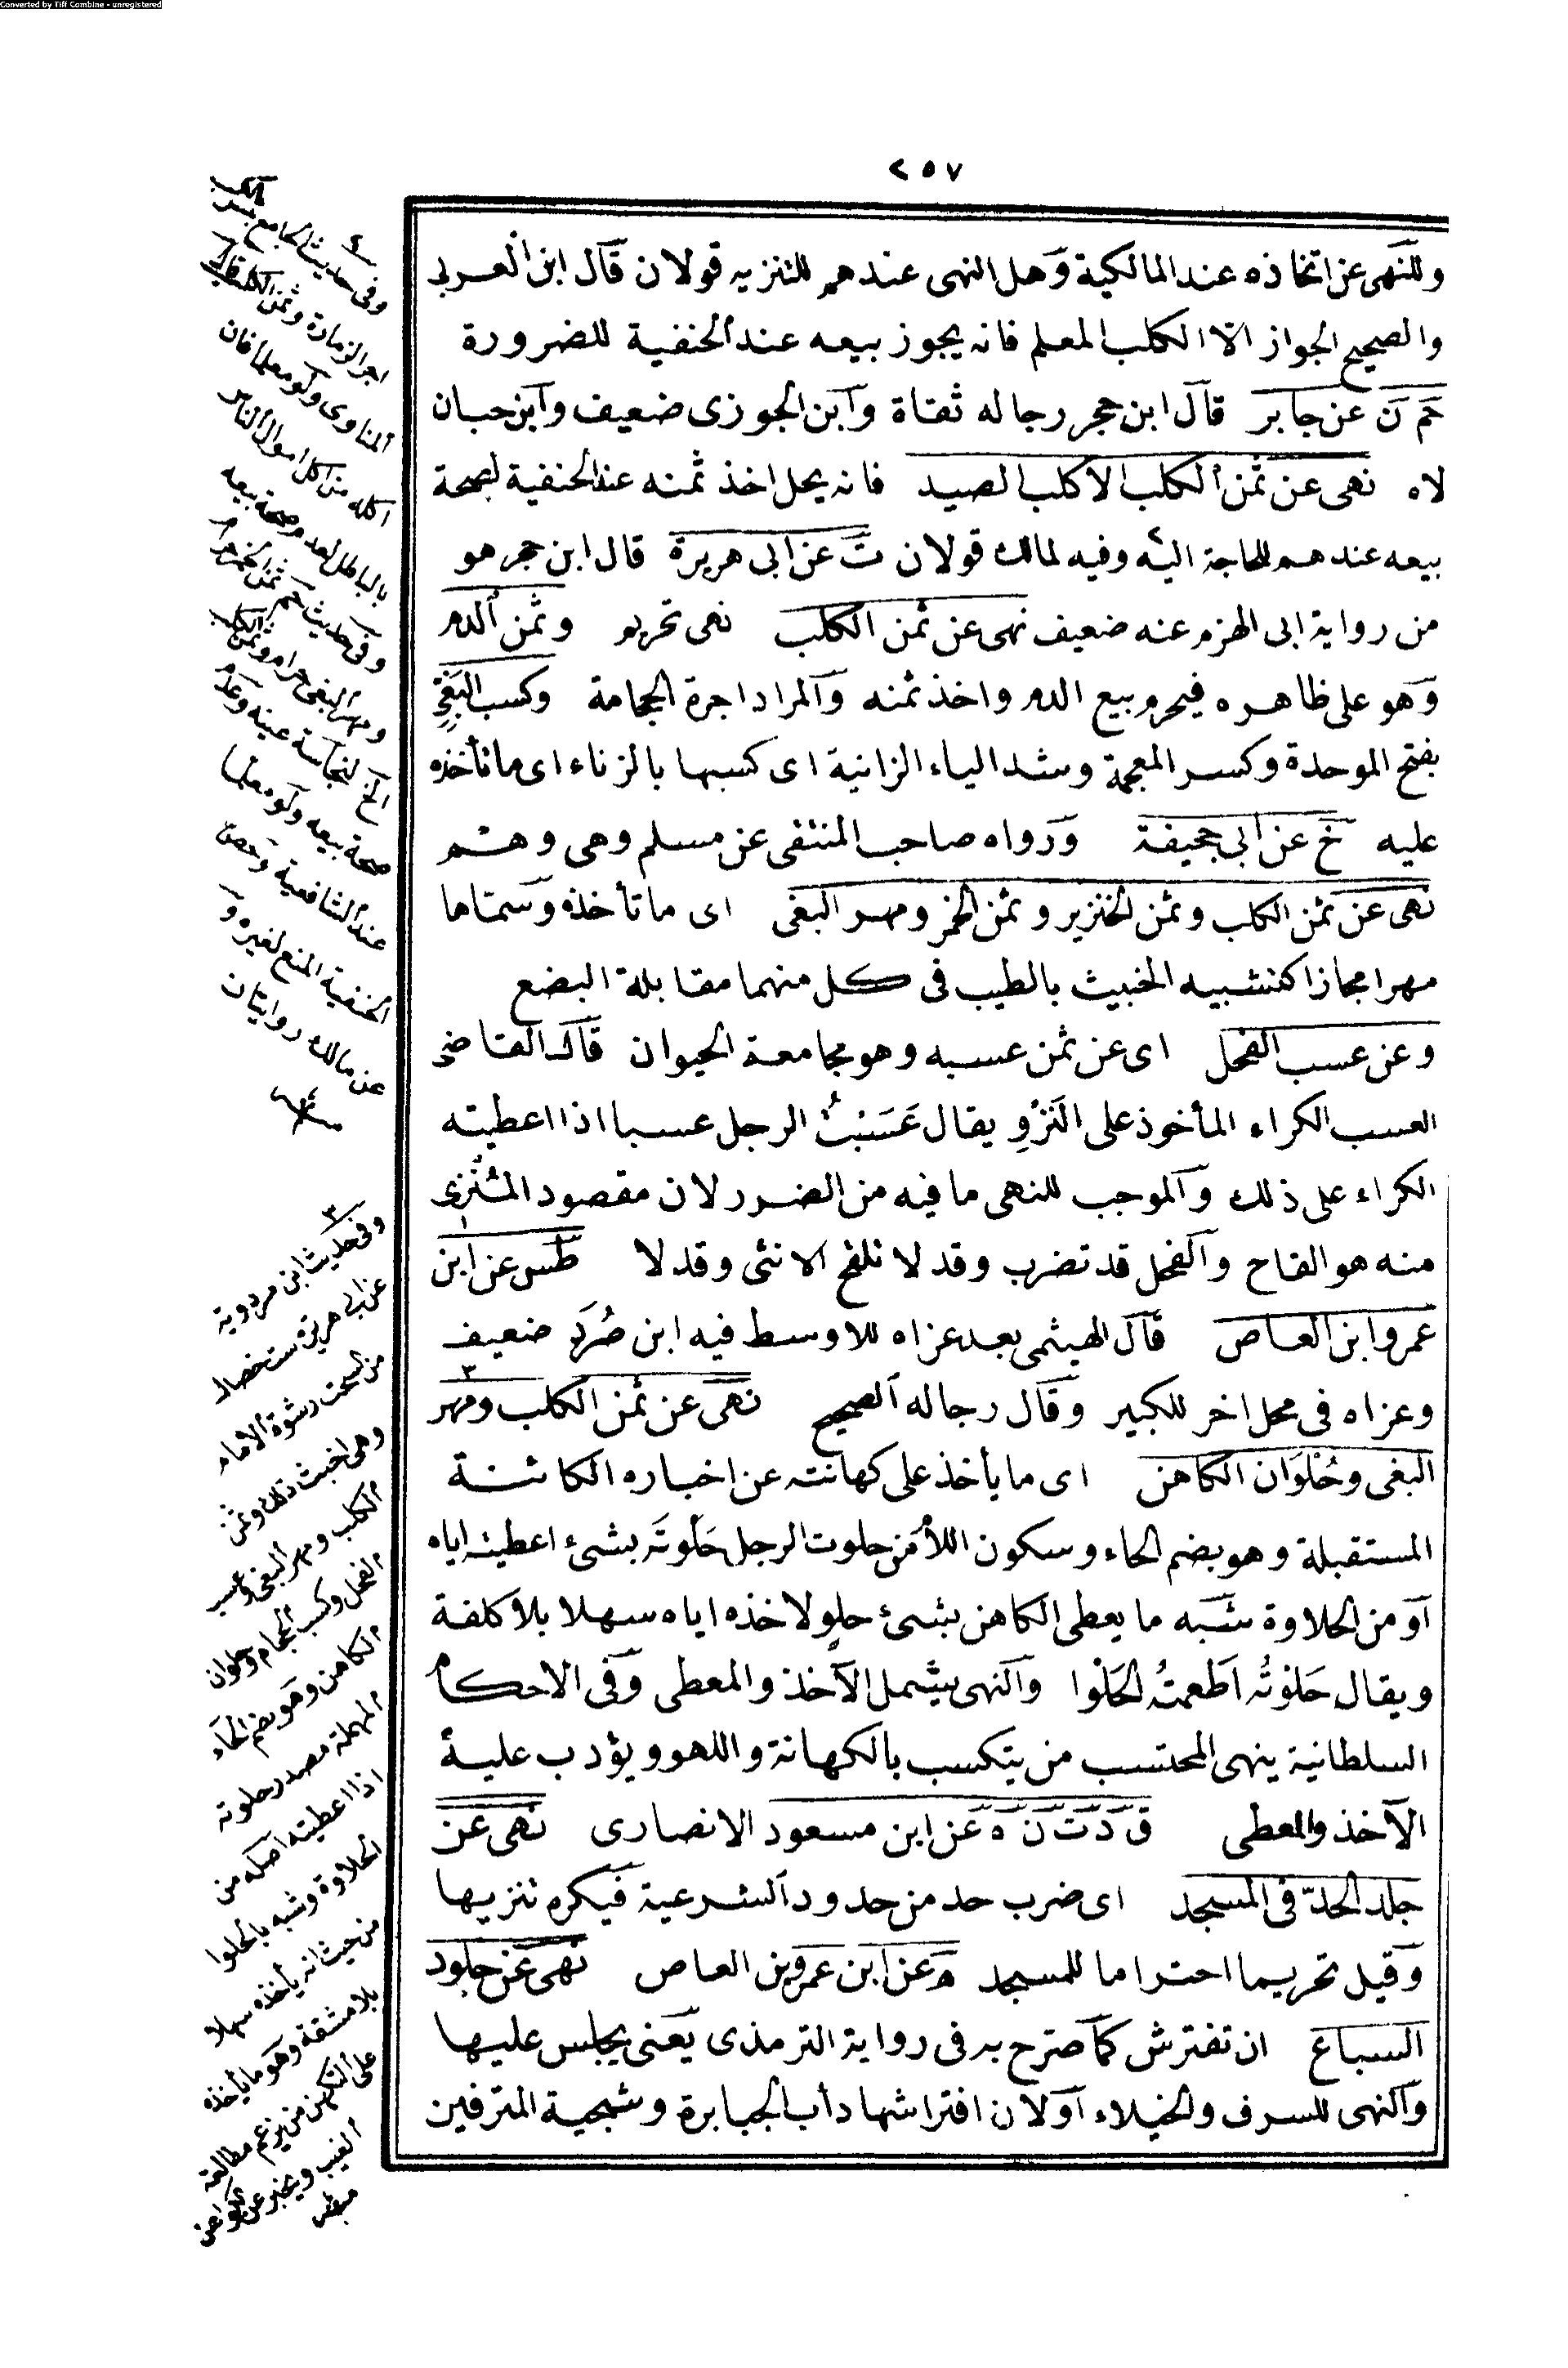 Converted by Tiff Combine - unregistered
٢٥٧
وللنهى عن اتخاذه عند المالكية وهل النهى عندهم للتنزيه قولان قال ابن العربى
والصحيح الجواز الا الكلب المعلم فانه يجوز بيعه عند الحنفية للضرورة
حم ن عن جابر قال ابن حجر رجاله ثقاة وابن الجوزى ضعيف وابن حبان
لاه نهى عن ثمن الكلب الا كلب الصيد فانه يحل اخذ ثمنه عند الحنفية لصحة
بيعه عندهم للحاجة اليه وفيه لمالك قولان ت عن ابى هريرة قال ابن حجر هو
من رواية ابى الهزم عنه ضعيف نهى عن ثمن الكلب نهى تحريم وثمن الدم
وهو على ظاهره فيحرم بيع الدم واخذ ثمنه والمراد اجرة الحجامة وكسب البَغِىِّ
بفتح الموحدة وكسر المعجمة وشد الياء الزانية اى كسبها بالزناء اى ما تأخذه
عليه خ عن ابى جحيفة ورواه صاحب المنتقى عن مسلم وهى وهم
نهى عن ثمن الكلب وثمن الخنزير وثمن الخمر ومهر البغى اى ما تأخذه وسماها
مهرا مجازا كتشبيه الخبيث بالطيب فى كل منهما مقابلة البضع
وعن عسب الفحل اى عن ثمن عسبه وهو مجامعة الحيوان قال القاضى
العسب الكراء المأخوذ على النَزْوِ يقال عَسَبْتُ الرجل عسبا اذا اعطيته
الكراء على ذلك والموجب للنهى ما فيه من الضرر لان مقصود المشترى
منه هو القاح والفحل قد تضرب وقد لا تلقح الانثى وقد لا طس عن ابن
عمرو ابن العاص قال الهيثمى بعد عزاه للاوسط فيه ابن صُرَد ضعيف
وعزاه فى محل اخر للكبير وقال رجاله الصحيح نهى عن ثمن الكلب ٣ ومهر
البغى وحُلْوَان الكاهن اى ما يأخذ على كهانته عن اخباره الكائنة
المستقبلة وهو بضم الحاء وسكون اللام من حلوت الرجل حلوته بشئ اعطيته اياه
او من الحلاوة شبه ما يعطى الكاهن بشئ حلو لاخذه اياه سهلا بلا كلفة
ويقال حَلَوْتُه اَطعمتُه الحَلْوا والنهى يشمل الآخذ والمعطى وفى الاحكام
السلطانية ينهى المحتسب من يتكسب بالكهانة واللهو ويؤدب عليه
الآخذ والمعطى ق د ت ن ه عن ابن مسعود الانصارى نهى عن
جلد الحدّ فى المسجد اى ضرب حد من حدود الشرعية فيكره تنزيها
وقيل تحريما احتراما للمسجد ه عن ابن عمرو بن العاص نهى عن جلود
السباع ان تفترش كما صرح به فى رواية الترمذى يعنى يجلس عليها
والنهى للسرف والخيلاء او لان افتراشها دأب الجبابرة وشجية المترفين
وفى حديث الجامع
اجر الزمارة وثمن الكلب قال
المناوى ولو معلما فان
اكله من اكل اموال الناس
بالباطل لعدم صحة بيعه
وفى حديث حم ثمن الخمر حرام
ومهر البغى حرام وثمن الكلب
الخ لنجاسة عينه وعدم
صحة بيعه ولو معلما
عند الشافعية وخص
الحنفية المنع لغيره و
عن مالك روايتان
٣
وفى حديث ابن مردوية
عن ابى هريرة ست خصال
من السحت رشوة الامام
وهى اخبث ذلك وثمن
الكلب ومهر البغى وعسب
الفحل وكسب الحجام وحلوان
الكاهن وهو بضم الحاء
المهملة مصدر حلوته
اذا اعطيته اصله من
الحلاوة وشبه بالحلوا
من حيث انه يأخذه سهلا
بلا مشقة وهو ما يأخذه
على التكهن من يزعم مطالعة
الغيب ويخبر عن